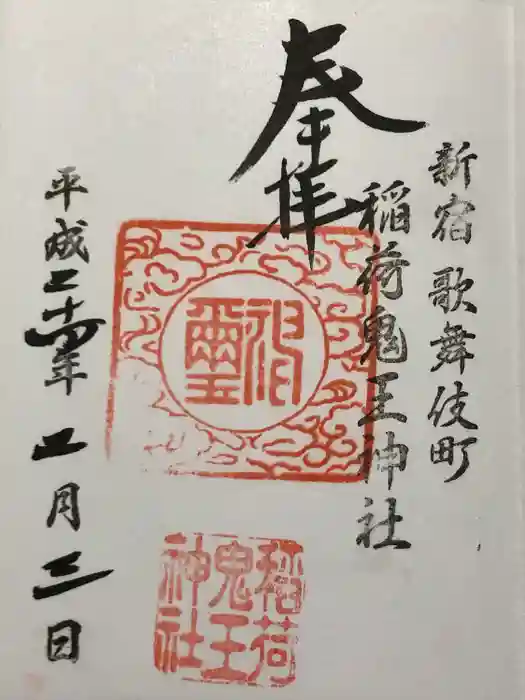 新宿 歌舞伎町
奉拝
稲荷鬼王神社
神璽
稲荷
鬼王
神社
平成二十四年 月三日